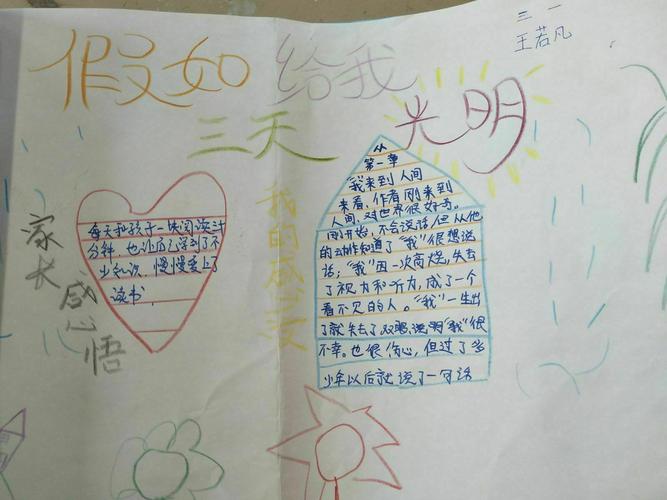 三一
王若凡
假如给我
三天光明
家长感心悟
每天和孩子一块阅读三十
分钟，也让自己学到了不
少知识，慢慢爱上了
读书
我的感受
第一章
"我来到人间
来看，作者刚来到
人间，对世界很好奇。
刚开始，不会说话但从他
的动作知道了"我"很想说
话；"我"因一次高烧，失去
了视力和听力，成了一个
看不见的人。"我"一生出
了就失去了双
"我"很
不幸。也很伤心，但过了多
少年以后就说了一句话